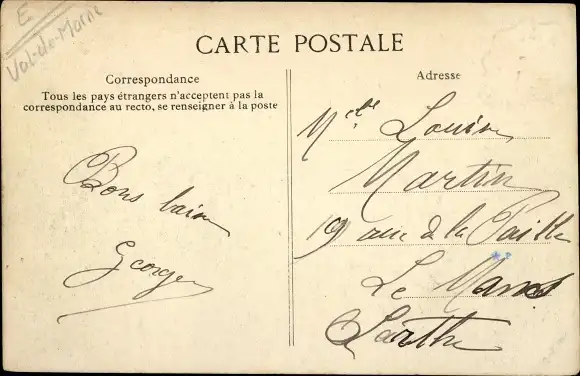 E
Val-de-Marne
CARTE POSTALE
Correspondance
Tous les pays étrangers n'acceptent pas la
correspondance au recto, se renseigner à la poste
Adresse
Bons
Georges
Melle Louise
Martin
19 rue de la Paille
Le Mans
Sarthe